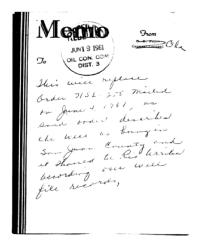 Memo
From
To
JUN 19 1961
OIL CON. COM.
DIST. 3
This will replace
Order mailed
on June 1961, as
said order described
the well as being in
San Juan County and
it should be Rio Arriba
according our well
file records,